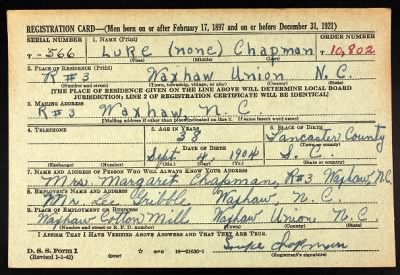 REGISTRATION CARD—(Men born on or after February 17, 1897 and on or before December 31, 1921)
SERIAL NUMBER 1. NAME (Print) ORDER NUMBER
T-566 Luke (none) Chapman T10,802
(First) (Middle) (Last)
2. PLACE OF RESIDENCE (Print)
R#3 Waxhaw Union N. C.
(Number and street) (Town, township, village, or city) (County) (State)
[THE PLACE OF RESIDENCE GIVEN ON THE LINE ABOVE WILL DETERMINE LOCAL BOARD
JURISDICTION; LINE 2 OF REGISTRATION CERTIFICATE WILL BE IDENTICAL]
3. MAILING ADDRESS
R#3 Waxhaw N. C.
[Mailing address if other than place indicated on line 2. If same insert word same]
4. TELEPHONE 5. AGE IN YEARS 6. PLACE OF BIRTH
38 Lancaster County
DATE OF BIRTH (Town or county)
Sept 4, 1904 S. C.
(Exchange) (Number) (Mo.) (Day) (Yr.) (State or country)
7. NAME AND ADDRESS OF PERSON WHO WILL ALWAYS KNOW YOUR ADDRESS
Mrs. Margaret Chapman, R#3 Waxhaw N.C.
8. EMPLOYER'S NAME AND ADDRESS
Mr. Lee Gribble Waxhaw, N. C.
9. PLACE OF EMPLOYMENT OR BUSINESS
Waxhaw Cotton Mill Waxhaw Union N. C.
(Number and street or R. F. D. number) (Town) (County) (State)
I AFFIRM THAT I HAVE VERIFIED ABOVE ANSWERS AND THAT THEY ARE TRUE.
D. S. S. Form 1
(Revised 1-1-42) (over) GPO 16—21630-1 Luke Chapman